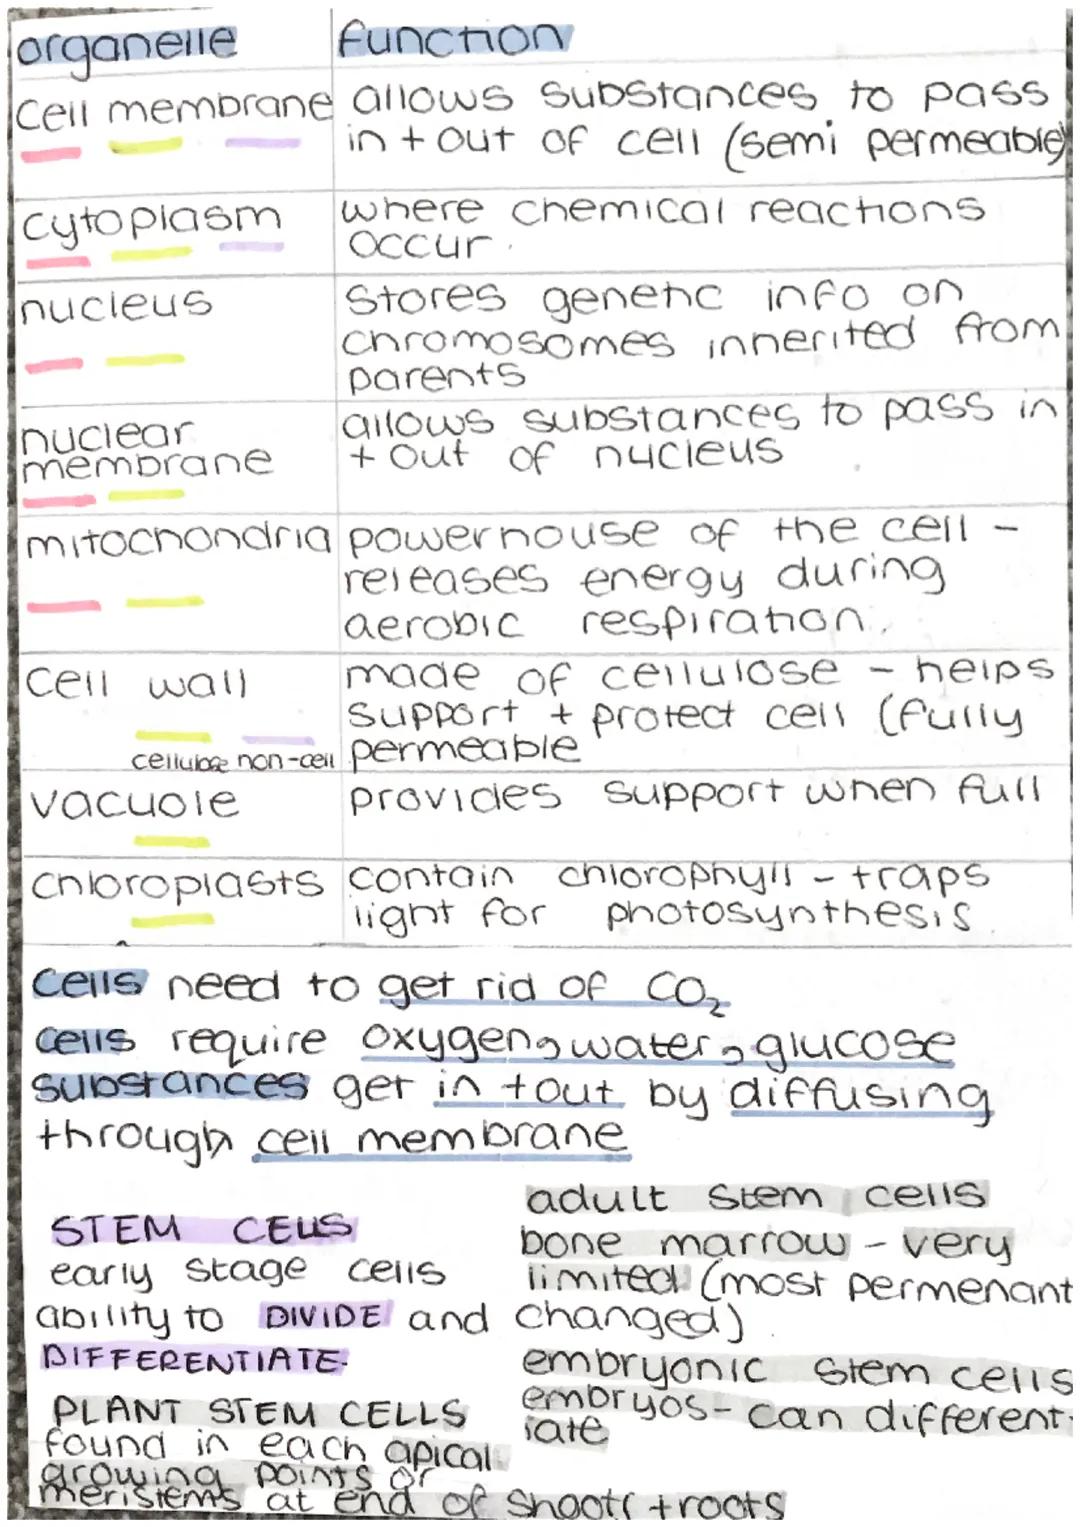 organelle function
cell membrane allows substances to pass
in + out of cell (semi permeable)
cytoplasm where chemical reactions
occur.
nucleus stores genetic info on
chromosomes inherited from
parents
nuclear allows substances to pass in
membrane + out of nucleus
mitochondria powerhouse of the cell -
releases energy during
aerobic respiration.
cell wall made of cellulose - helps
support + protect cell (fully
cellulose non-cell permeable
vacuole provides support when full
chloroplasts contain chlorophyll - traps
light for photosynthesis.
cells need to get rid of CO₂
cells require oxygen, water, glucose
substances get in + out by diffusing
through cell membrane
STEM CELLS
early stage cells
ability to DIVIDE and
DIFFERENTIATE.
PLANT STEM CELLS
found in each apical
growing points or
meristems at end of shoots + roots
adult stem cells
bone marrow - very
limited (most permenant
changed)
embryonic stem cells
embryos - can different-
iate